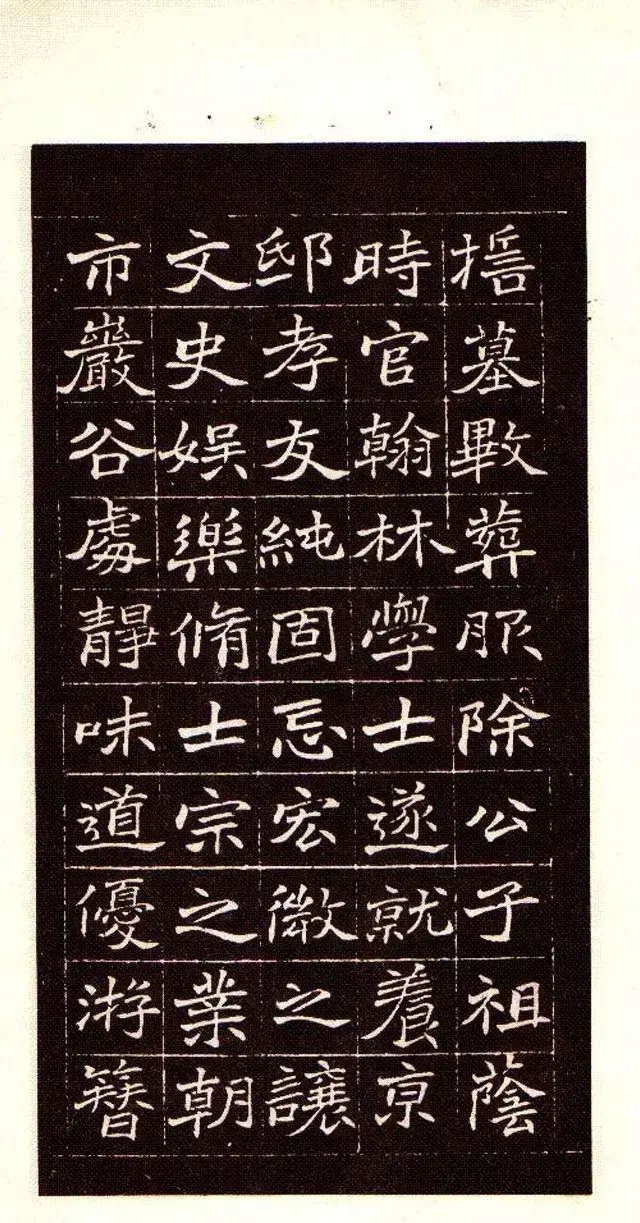 墓數葬服除公子祖蔭
時官翰林學士遂就養京
邸孝友純固忘宏微之讓
文史娛樂脩士宗之業朝
市巖谷處靜味道優游簪